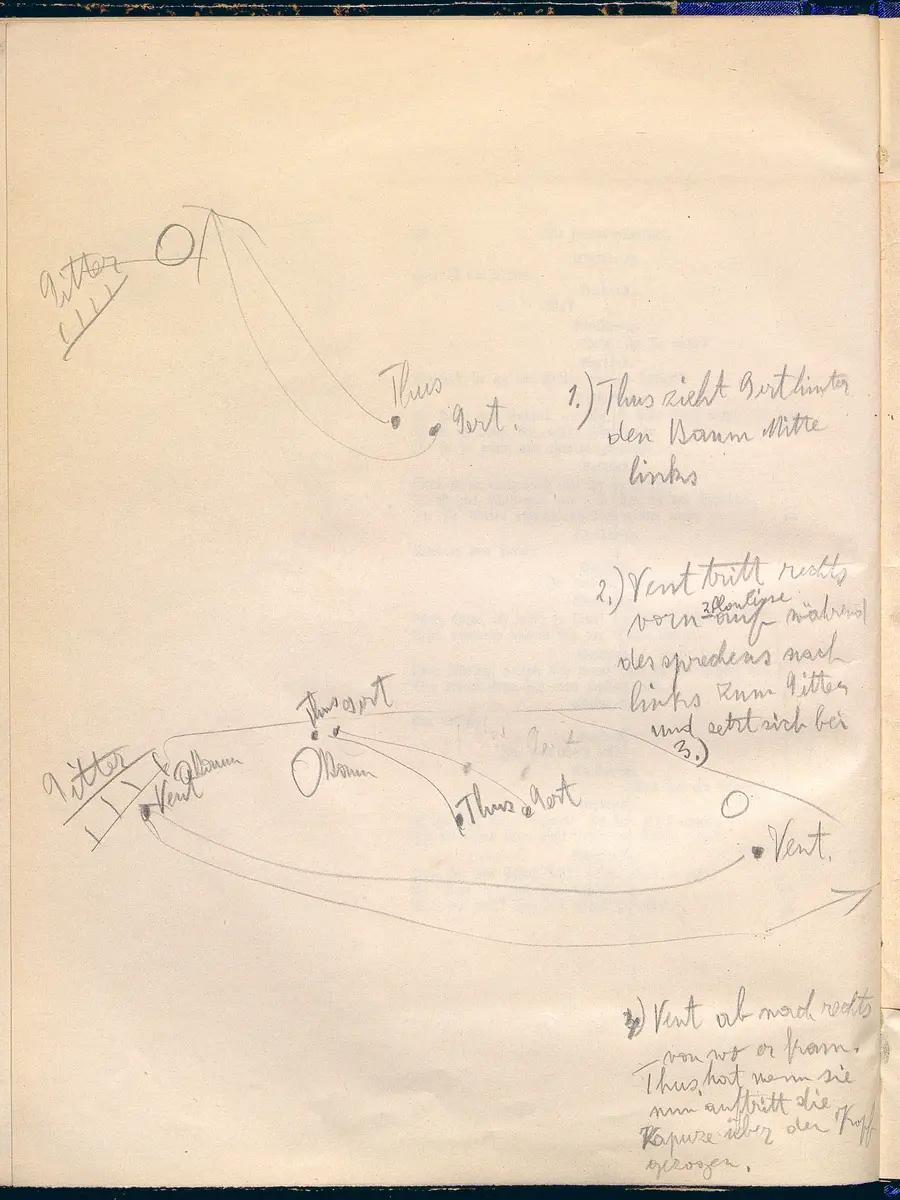 Gitter
Thus
Gert.
1.) Thus zieht Gert hinter
den Baum Mitte
links
2.) Vent tritt rechts
vorn auf während
des sprechens nach
links zum Gitter
und setzt sich bei
3.)
Thus Gert
Gitter
Baum
Vent
Baum
Gert
Thus Gert
Vent.
3) Vent ab nach rechts
von wo er kam.
Thus hat wenn sie
nun auftritt die
Kapuze über den Kopf
gezogen.